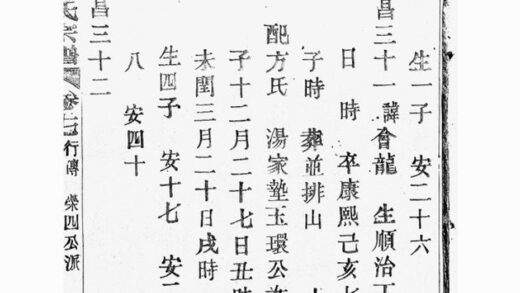 生一子 安二十六
昌三十一 諱會龍 生順治丁
日 時 卒康熙己亥七
子時 葬並排山
配方氏 湯家墊玉環公
子十二月二十七日丑時
未閏三月二十日戌時
生四子 安十七 安二
八 安四十
昌三十二
氏宗譜 卷 行傳 榮四公派